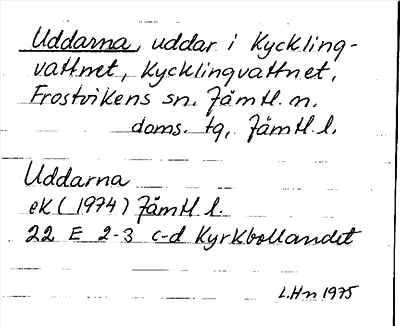 Uddarna, uddar i Kyckling-
vattnet, Kycklingvattnet,
Frostvikens sn. Jämtl. n.
doms. tg, Jämtl. l.
Uddarna
ek (1974) Jämtl l.
22 E 2-3 c-d Kyrkbollandet
L.Hn 1975